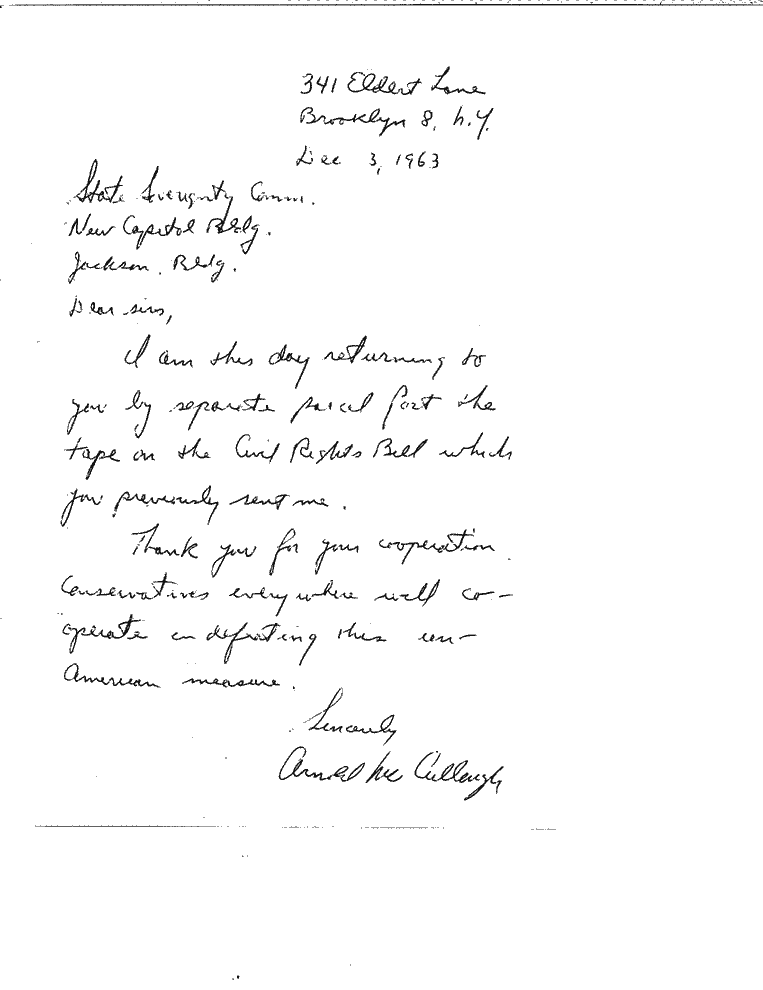 341 Eldert Lane
Brooklyn 8, N.Y.
Dec 3, 1963
State Sovereignty Comm.
New Capitol Bldg.
Jackson, Bldg.
Dear sirs,
I am this day returning to
you by separate parcel post the
tape on the Civil Rights Bill which
you previously sent me.
Thank you for your cooperation.
Conservatives everywhere will co-
operate in defeating this un-
American measure.
Sincerely
Arnold McCullough